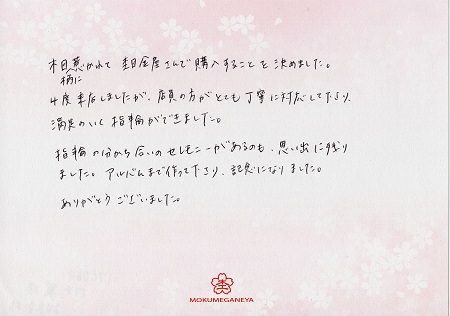 木目柄に惹かれて 杢目金屋さんで購入することを決めました。
4度来店しましたが、店員の方がとても丁寧に対応して下さり、
満足のいく指輪ができました。
指輪の分かち合いのセレモニーがあるのも、思い出に残り
ました。アルバムまで作って下さり、記念になりました。
ありがとうございました。
MOKUMEGANEYA